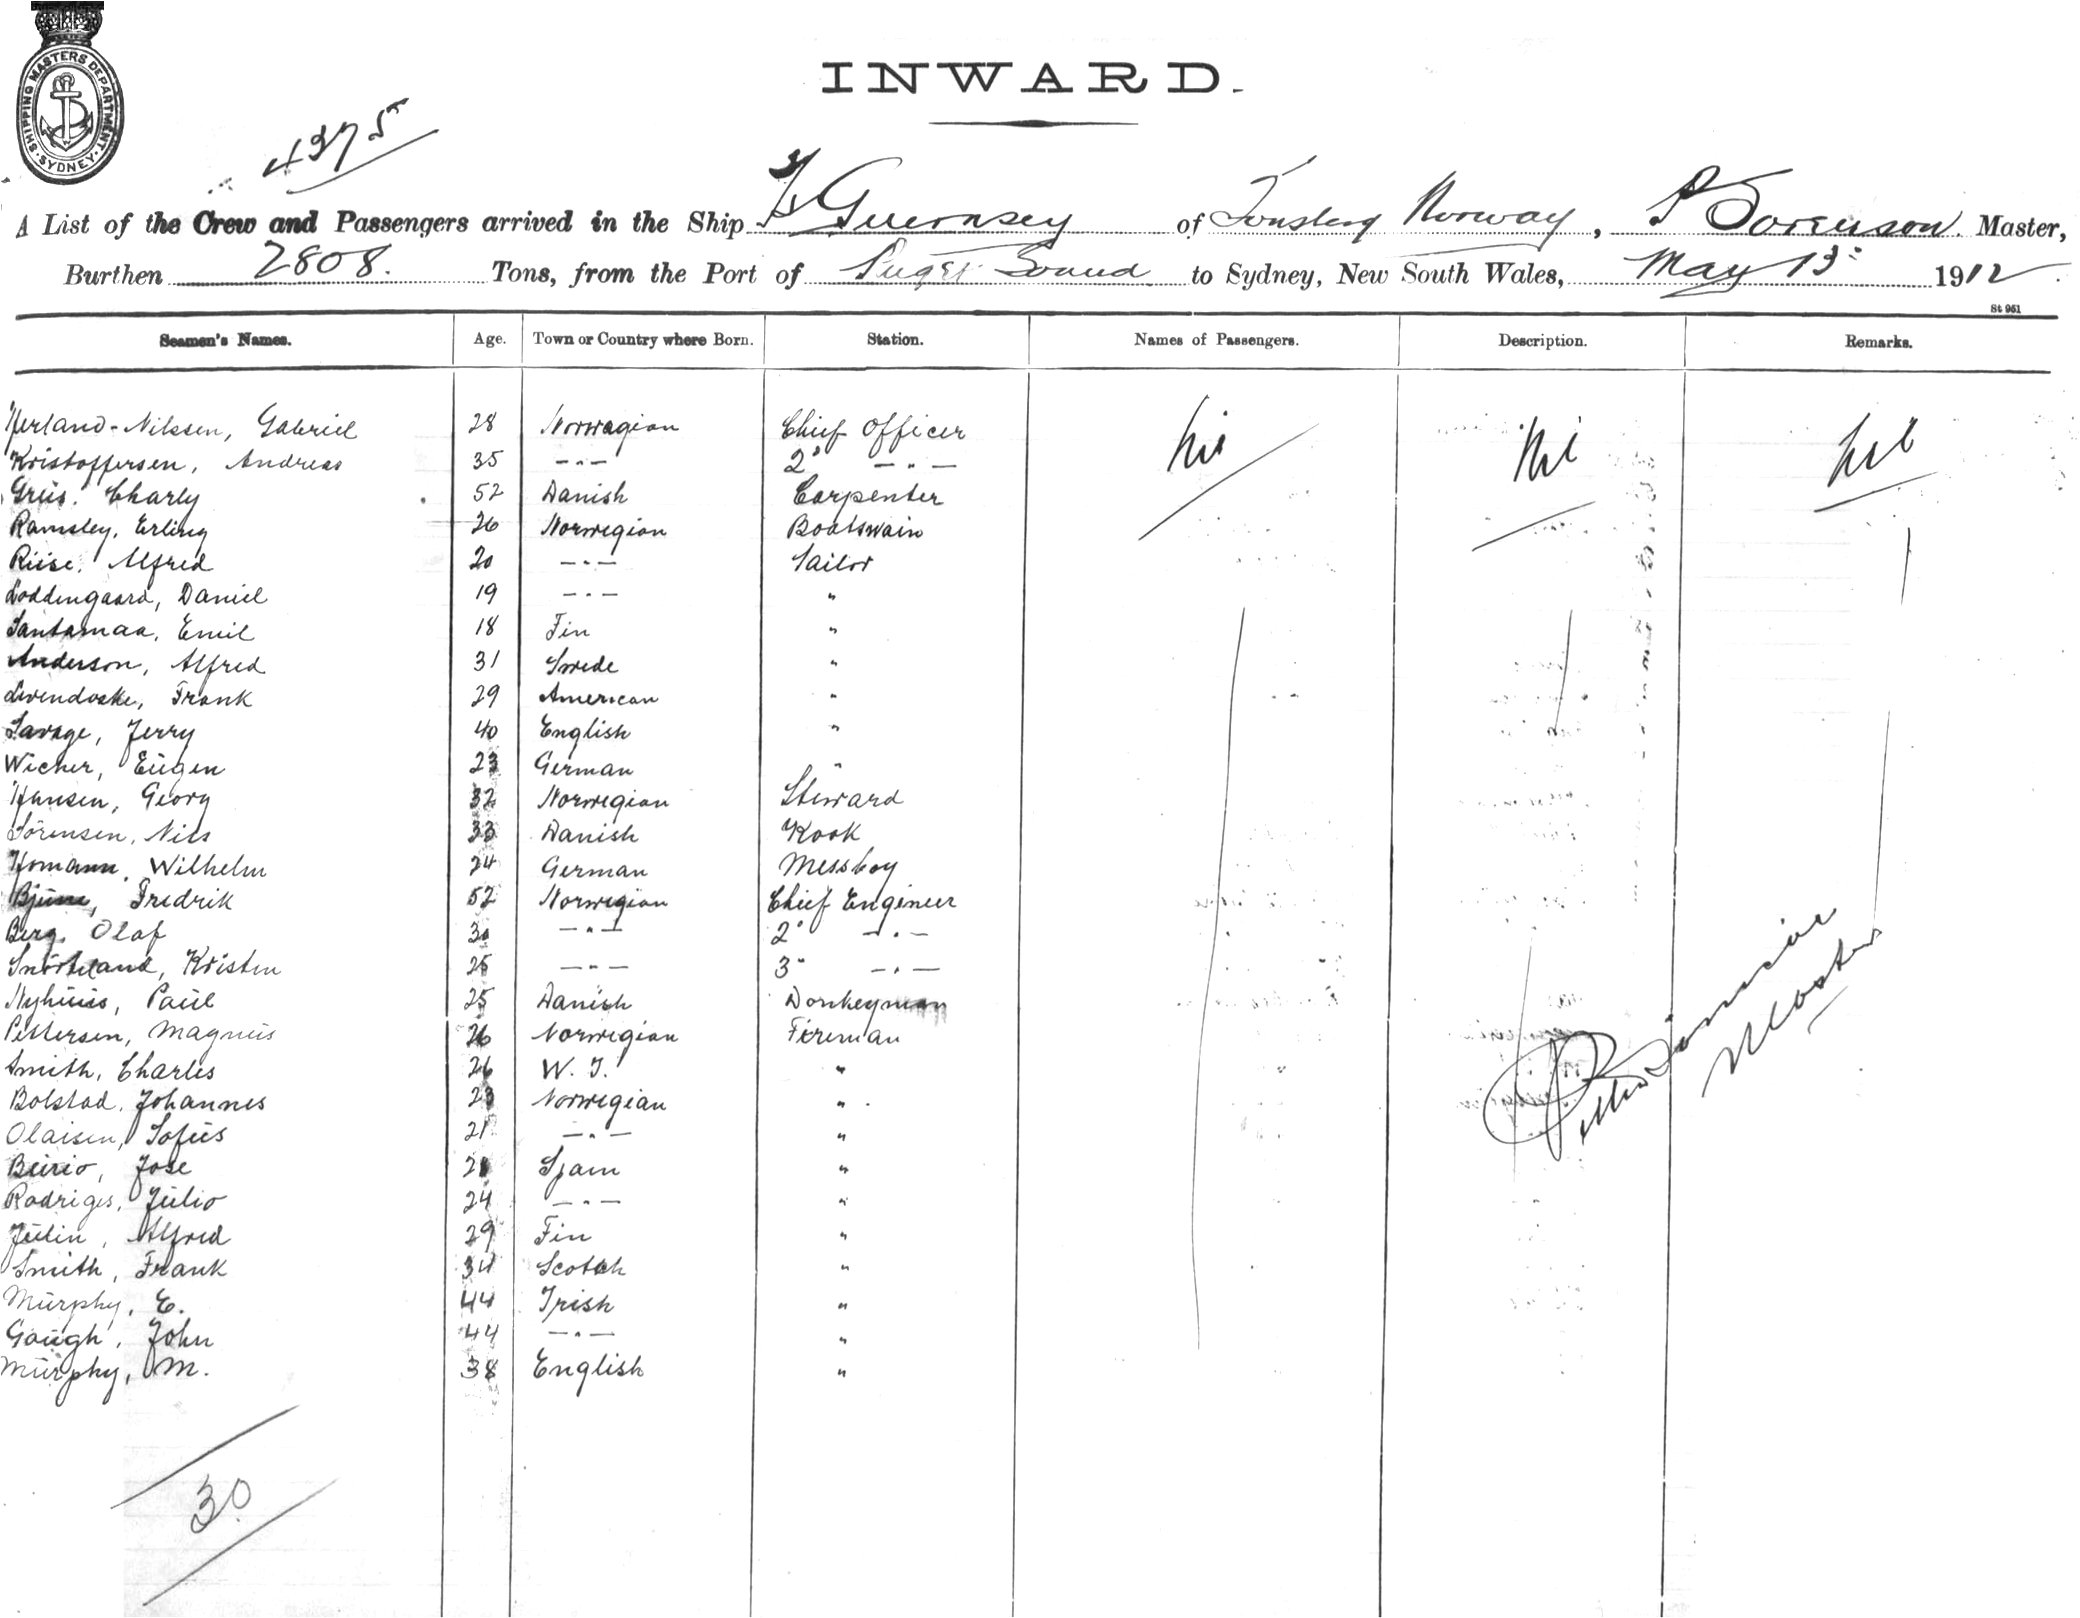 SHIPPING MASTERS DEPARTMENT
SYDNEY
INWARD.
4375
A List of the Crew and Passengers arrived in the Ship Guernsey of Tonsberg Norway, P Sorenson Master,
Burthen 2808. Tons, from the Port of Puget Sound to Sydney, New South Wales, May 13 1912
St 951
Seamen's Names. Age. Town or Country where Born. Station. Names of Passengers. Description. Remarks.
Herland-Nilssen, Gabriel 28 Norwegian Chief Officer Nil Nil Nil
Kristoffersen, Andreas 35 —"— 2° —"—
Greis. Charly 52 Danish Carpenter
Ramsley, Erling 26 Norwegian Boatswain
Riise, Alfred 20 —"— Sailor
Loddengaard, Daniel 19 —"— "
Santamaa, Emil 18 Fin "
Anderson, Alfred 31 Swede "
Levendoske, Frank 29 American "
Savage, Jerry 40 English "
Wicher, Eugen 23 German "
Hansen, Georg 32 Norwegian Steward
Sörensen, Niels 33 Danish Kook
Homann, Wilhelm 24 German Messboy
Fredrik 52 Norwegian Chief Engineer
Berg, Olaf 30 —"— 2° —"—
Kristen 25 —"— 3° —"—
Nyhuus, Paul 25 Danish Donkeyman
Pettersen, Magnus 26 Norwegian Fireman
Smith, Charles 26 W. I. "
Bolstad, Johannes 23 Norwegian "
Olaisen, Sofus 21 —"— "
Jose 28 Spain "
Rodriges, Julio 24 —"— "
Julin, Alfred 29 Fin "
Smith, Frank 34 Scotch "
Murphy, E. 44 Irish "
Gough, John 44 —"— "
Murphy, M. 38 English "
Master
30